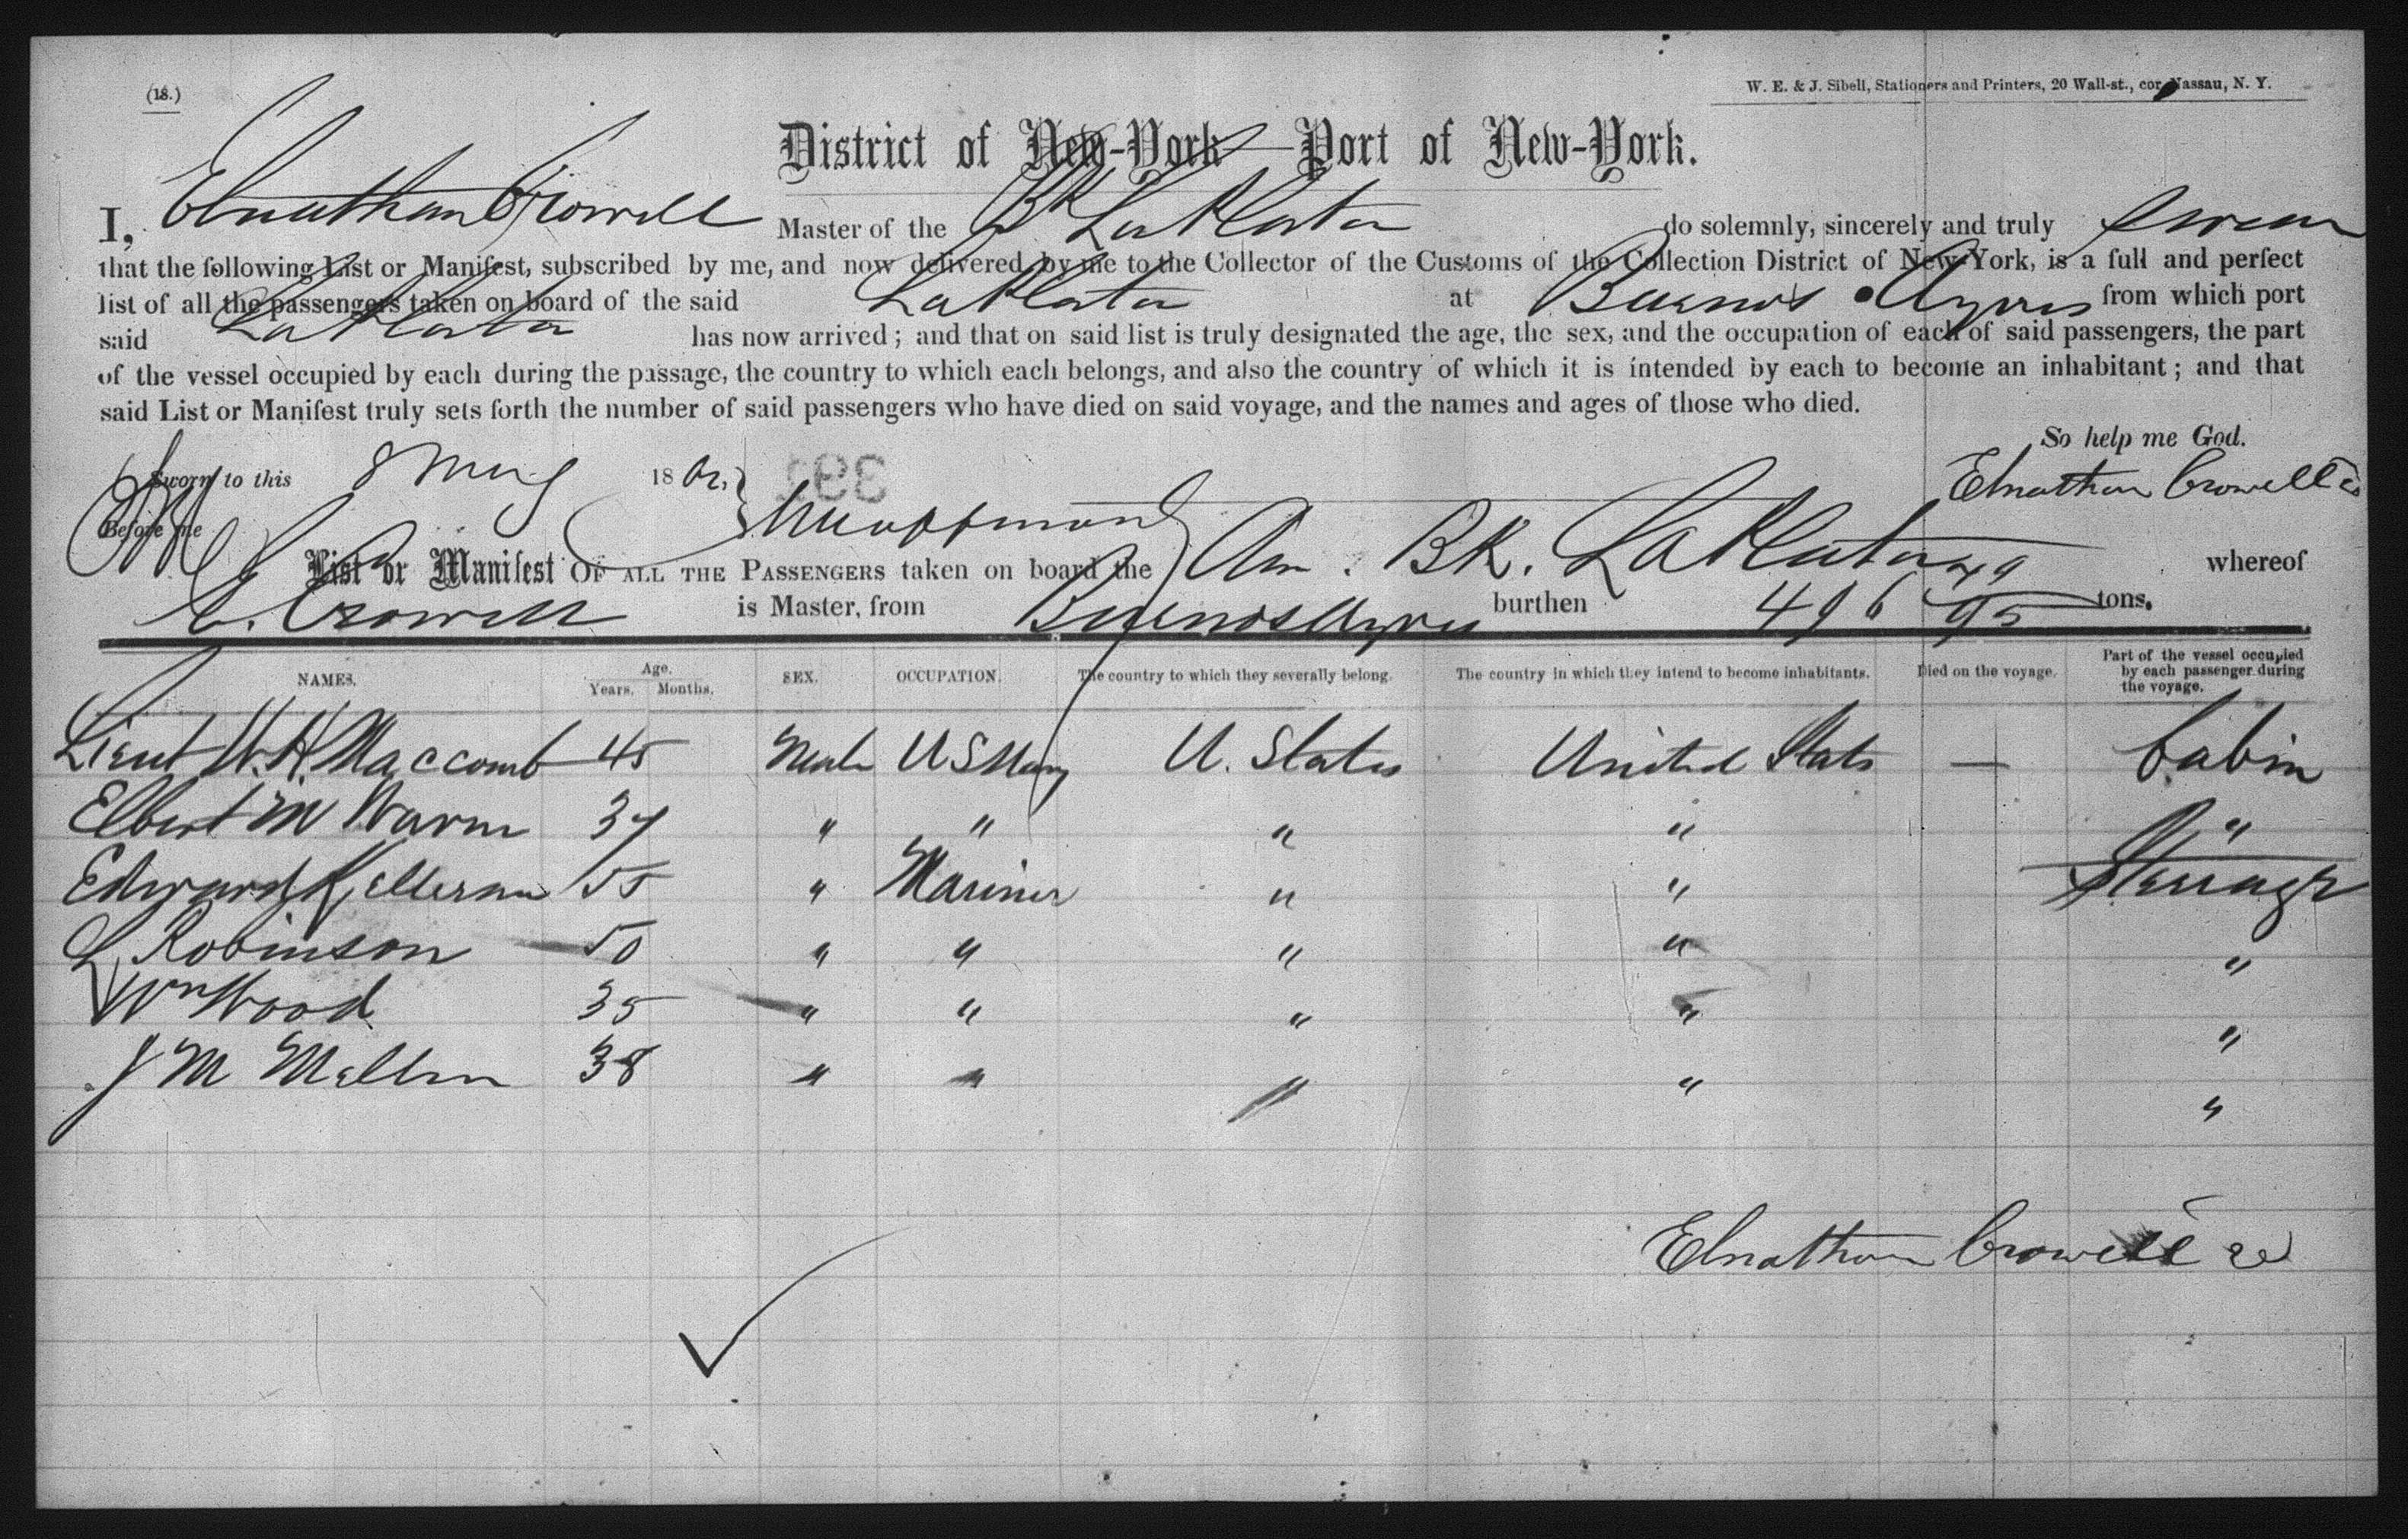 (18.)
W. E. & J. Sibell, Stationers and Printers, 20 Wall-st., cor. Nassau, N. Y.
District of New-York—Port of New-York.
I, Elnathan Crowell Master of the Bk La Plata do solemnly, sincerely and truly swear
that the following List or Manifest, subscribed by me, and now delivered by me to the Collector of the Customs of the Collection District of New-York, is a full and perfect
list of all the passengers taken on board of the said La Plata at Buenos Ayres from which port
said La Plata has now arrived; and that on said list is truly designated the age, the sex, and the occupation of each of said passengers, the part
of the vessel occupied by each during the passage, the country to which each belongs, and also the country of which it is intended by each to become an inhabitant; and that
said List or Manifest truly sets forth the number of said passengers who have died on said voyage, and the names and ages of those who died.
So help me God.
Sworn to this 8 May 18 Elnathan Crowell
Before me
List or Manifest OF ALL THE PASSENGERS taken on board the Am. Bk. La Plata whereof
E. Crowell is Master, from Buenos Ayres burthen 496 49/95 tons.
NAMES. Age. Years. Months. SEX. OCCUPATION. The country to which they severally belong. The country in which they intend to become inhabitants. Died on the voyage. Part of the vessel occupied by each passenger during the voyage.
Lieut W. H. Maccomb 45 Male US Navy U. States United States — Cabin
Elbert M Warm 37 " " " " "
Edward Kellerman 55 " Mariner " " Steerage
L Robinson 50 " " " " "
Wm Wood 35 " " " " "
J M Mellen 38 " " " " "
Elnathan Crowell